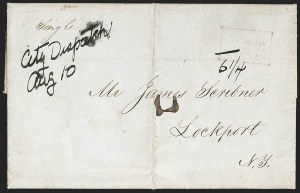 Single
City Dispatch
Aug 10
6 1/4
Mr James Scribner
Lockport
N.Y.